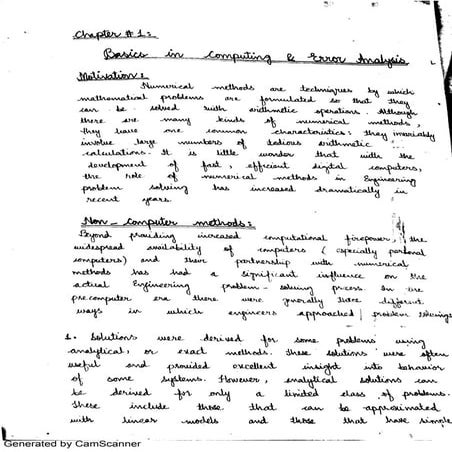 Chapter # 1:
Basics in Computing & Error Analysis
Motivation:
Numerical methods are techniques by which
mathematical problems are formulated so that they
can be solved with arithmetic operations. Although
there are many kinds of numerical methods,
they have one common characteristics: they invariably
involve large numbers of tedious arithmetic
calculations. It is little wonder that with the
development of fast, efficient digital computers,
the role of numerical methods in Engineering
problem solving has increased dramatically in
recent years.
Non-computer methods:
Beyond providing increased computational firepower, the
widespread availability of computers (especially personal
computers) and their partnership with numerical
methods has had a significant influence on the
actual Engineering problem-solving process. In the
precomputer era there were generally three different
ways in which engineers approached problem solving:
1. Solutions were derived for some problems using
analytical, or exact methods. These solutions were often
useful and provided excellent insight into behavior
of some systems. However, analytical solutions can
be derived for only a limited class of problems.
These include those that can be approximated
with linear models and those that have simple
Generated by CamScanner